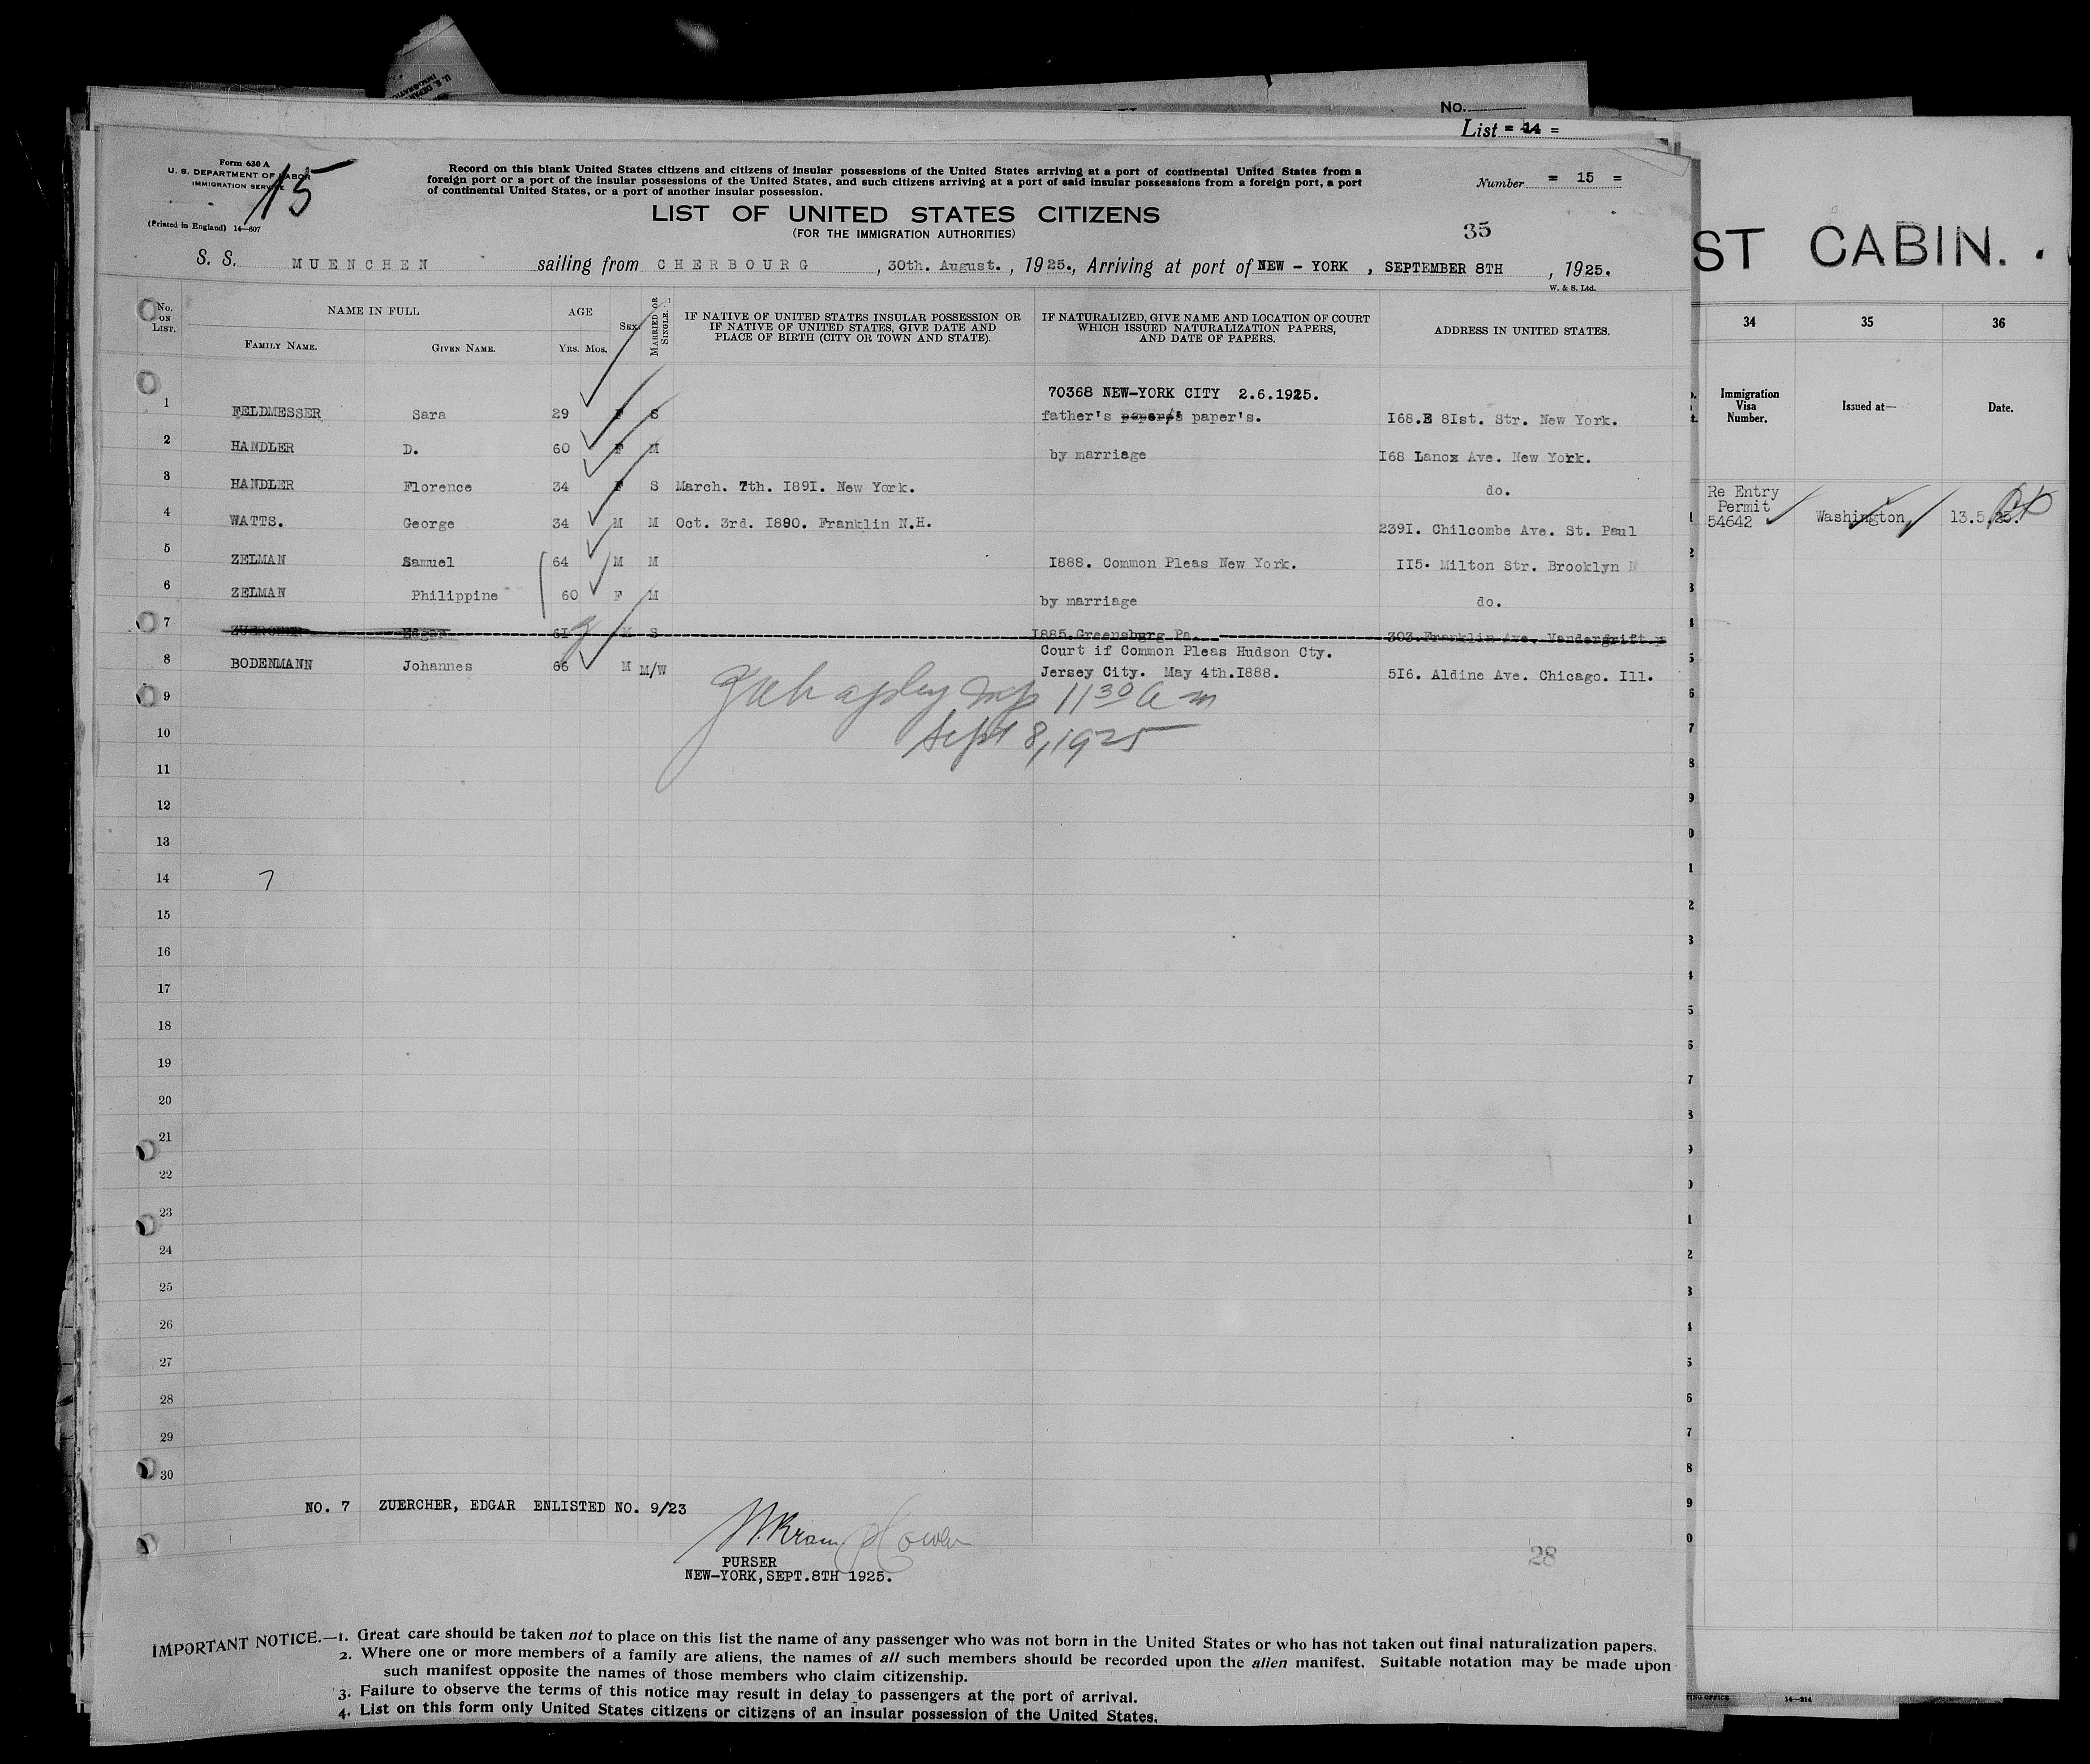 No.
List = 14 =
Form 630 A
U. S. DEPARTMENT OF LABOR
IMMIGRATION SERVICE
15
(Printed in England) 14—607
Record on this blank United States citizens and citizens of insular possessions of the United States arriving at a port of continental United States from a
foreign port or a port of the insular possessions of the United States, and such citizens arriving at a port of said insular possessions from a foreign port, a port
of continental United States, or a port of another insular possession.
Number = 15 =
LIST OF UNITED STATES CITIZENS
(FOR THE IMMIGRATION AUTHORITIES)
35
S. S. MUENCHEN sailing from CHERBOURG, 30th. August., 1925., Arriving at port of NEW - YORK, SEPTEMBER 8TH, 1925.
W. & S. Ltd.
No. ON LIST. NAME IN FULL FAMILY NAME. GIVEN NAME. AGE YRS. MOS. SEX. MARRIED OR SINGLE. IF NATIVE OF UNITED STATES INSULAR POSSESSION OR IF NATIVE OF UNITED STATES, GIVE DATE AND PLACE OF BIRTH (CITY OR TOWN AND STATE). IF NATURALIZED, GIVE NAME AND LOCATION OF COURT WHICH ISSUED NATURALIZATION PAPERS, AND DATE OF PAPERS. ADDRESS IN UNITED STATES.
70368 NEW-YORK CITY 2.6.1925.
1 FELDMESSER Sara 29 F S father's paper's paper's. I68.E 8Ist. Str. New York.
2 HANDLER D. 60 F M by marriage I68 Lanox Ave. New York.
3 HANDLER Florence 34 F S March. 7th. I89I. New York. do.
4 WATTS. George 34 M M Oct. 3rd. I890. Franklin N.H. 239I. Chilcombe Ave. St. Paul
5 ZELMAN Samuel 64 M M I888. Common Pleas New York. II5. Milton Str. Brooklyn N
6 ZELMAN Philippine 60 F M by marriage do.
7 ZUERCHER Edgar 6I M S I885.Greensburg Pa. 303.Franklin Ave. Vandergrift.p
Court if Common Pleas Hudson Cty.
8 BODENMANN Johannes 66 M M/W Jersey City. May 4th.I888. 5I6. Aldine Ave. Chicago. Ill.
11 30 a m
Sept 8, 1925
9
10
11
12
13
14 7
15
16
17
18
19
20
21
22
23
24
25
26
27
28
29
30
NO. 7 ZUERCHER, EDGAR ENLISTED NO. 9/23
PURSER
NEW-YORK,SEPT.8TH 1925.
28
IMPORTANT NOTICE.—1. Great care should be taken not to place on this list the name of any passenger who was not born in the United States or who has not taken out final naturalization papers.
2. Where one or more members of a family are aliens, the names of all such members should be recorded upon the alien manifest. Suitable notation may be made upon
such manifest opposite the names of those members who claim citizenship.
3. Failure to observe the terms of this notice may result in delay to passengers at the port of arrival.
4. List on this form only United States citizens or citizens of an insular possession of the United States.
ST CABIN.
34 35 36
Immigration Visa Number. Issued at— Date.
Re Entry
Permit
54642 Washington 13.5.25.
14—214